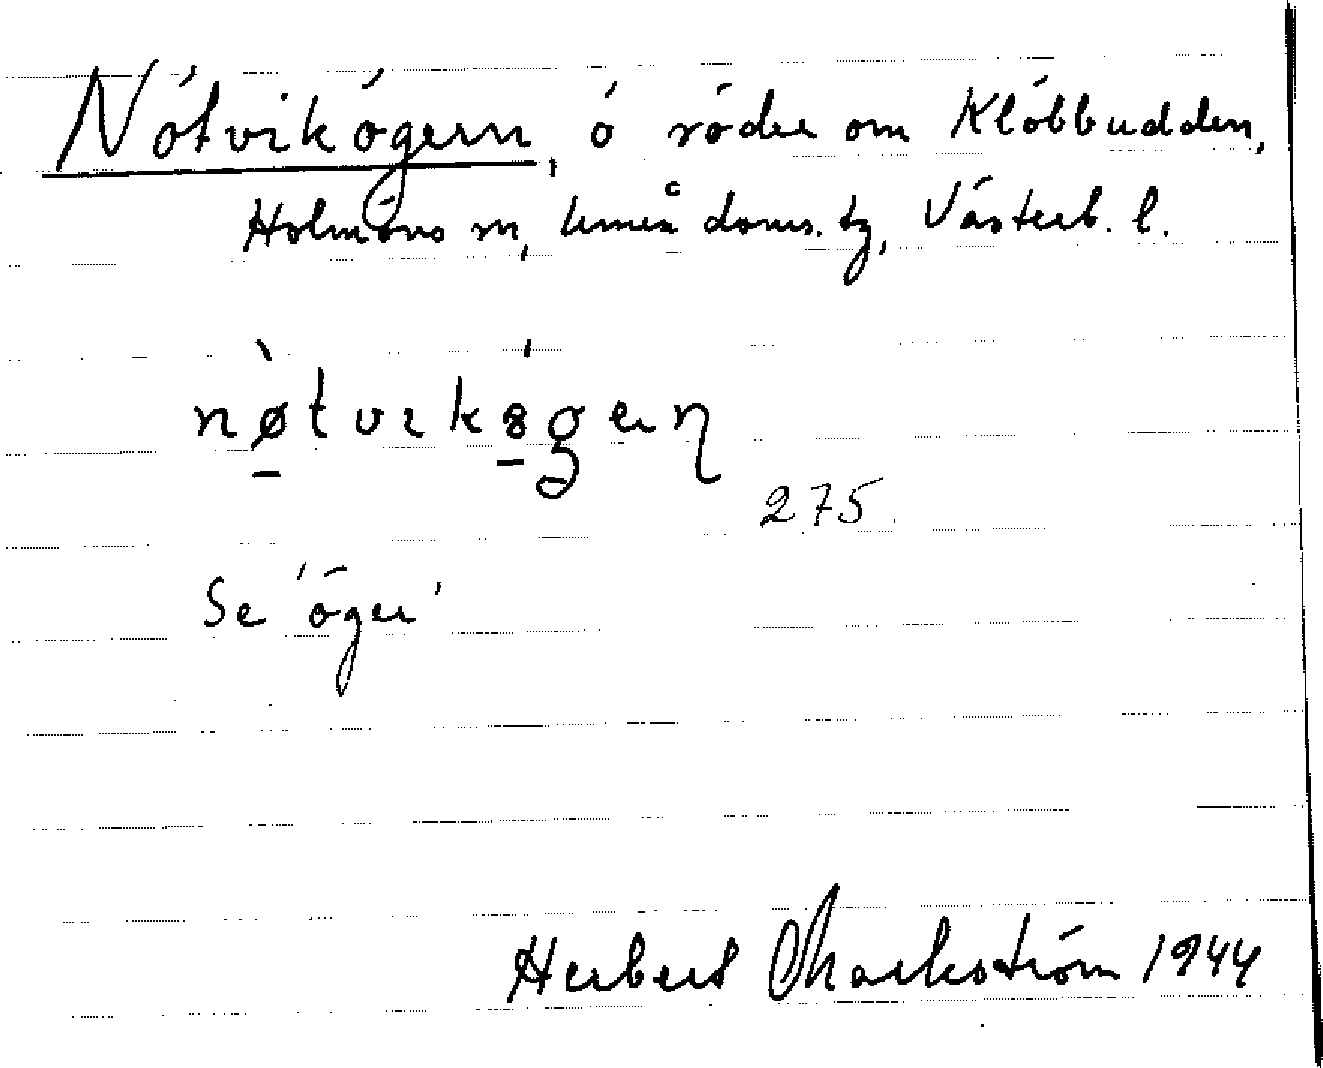 Nötvikögern, ö söder om Klöbbudden,
Holmöns sn, Umeå doms. tg, Västerb. l.
nøtvikögern
275
Se 'öger'
Herbert Markström 1944